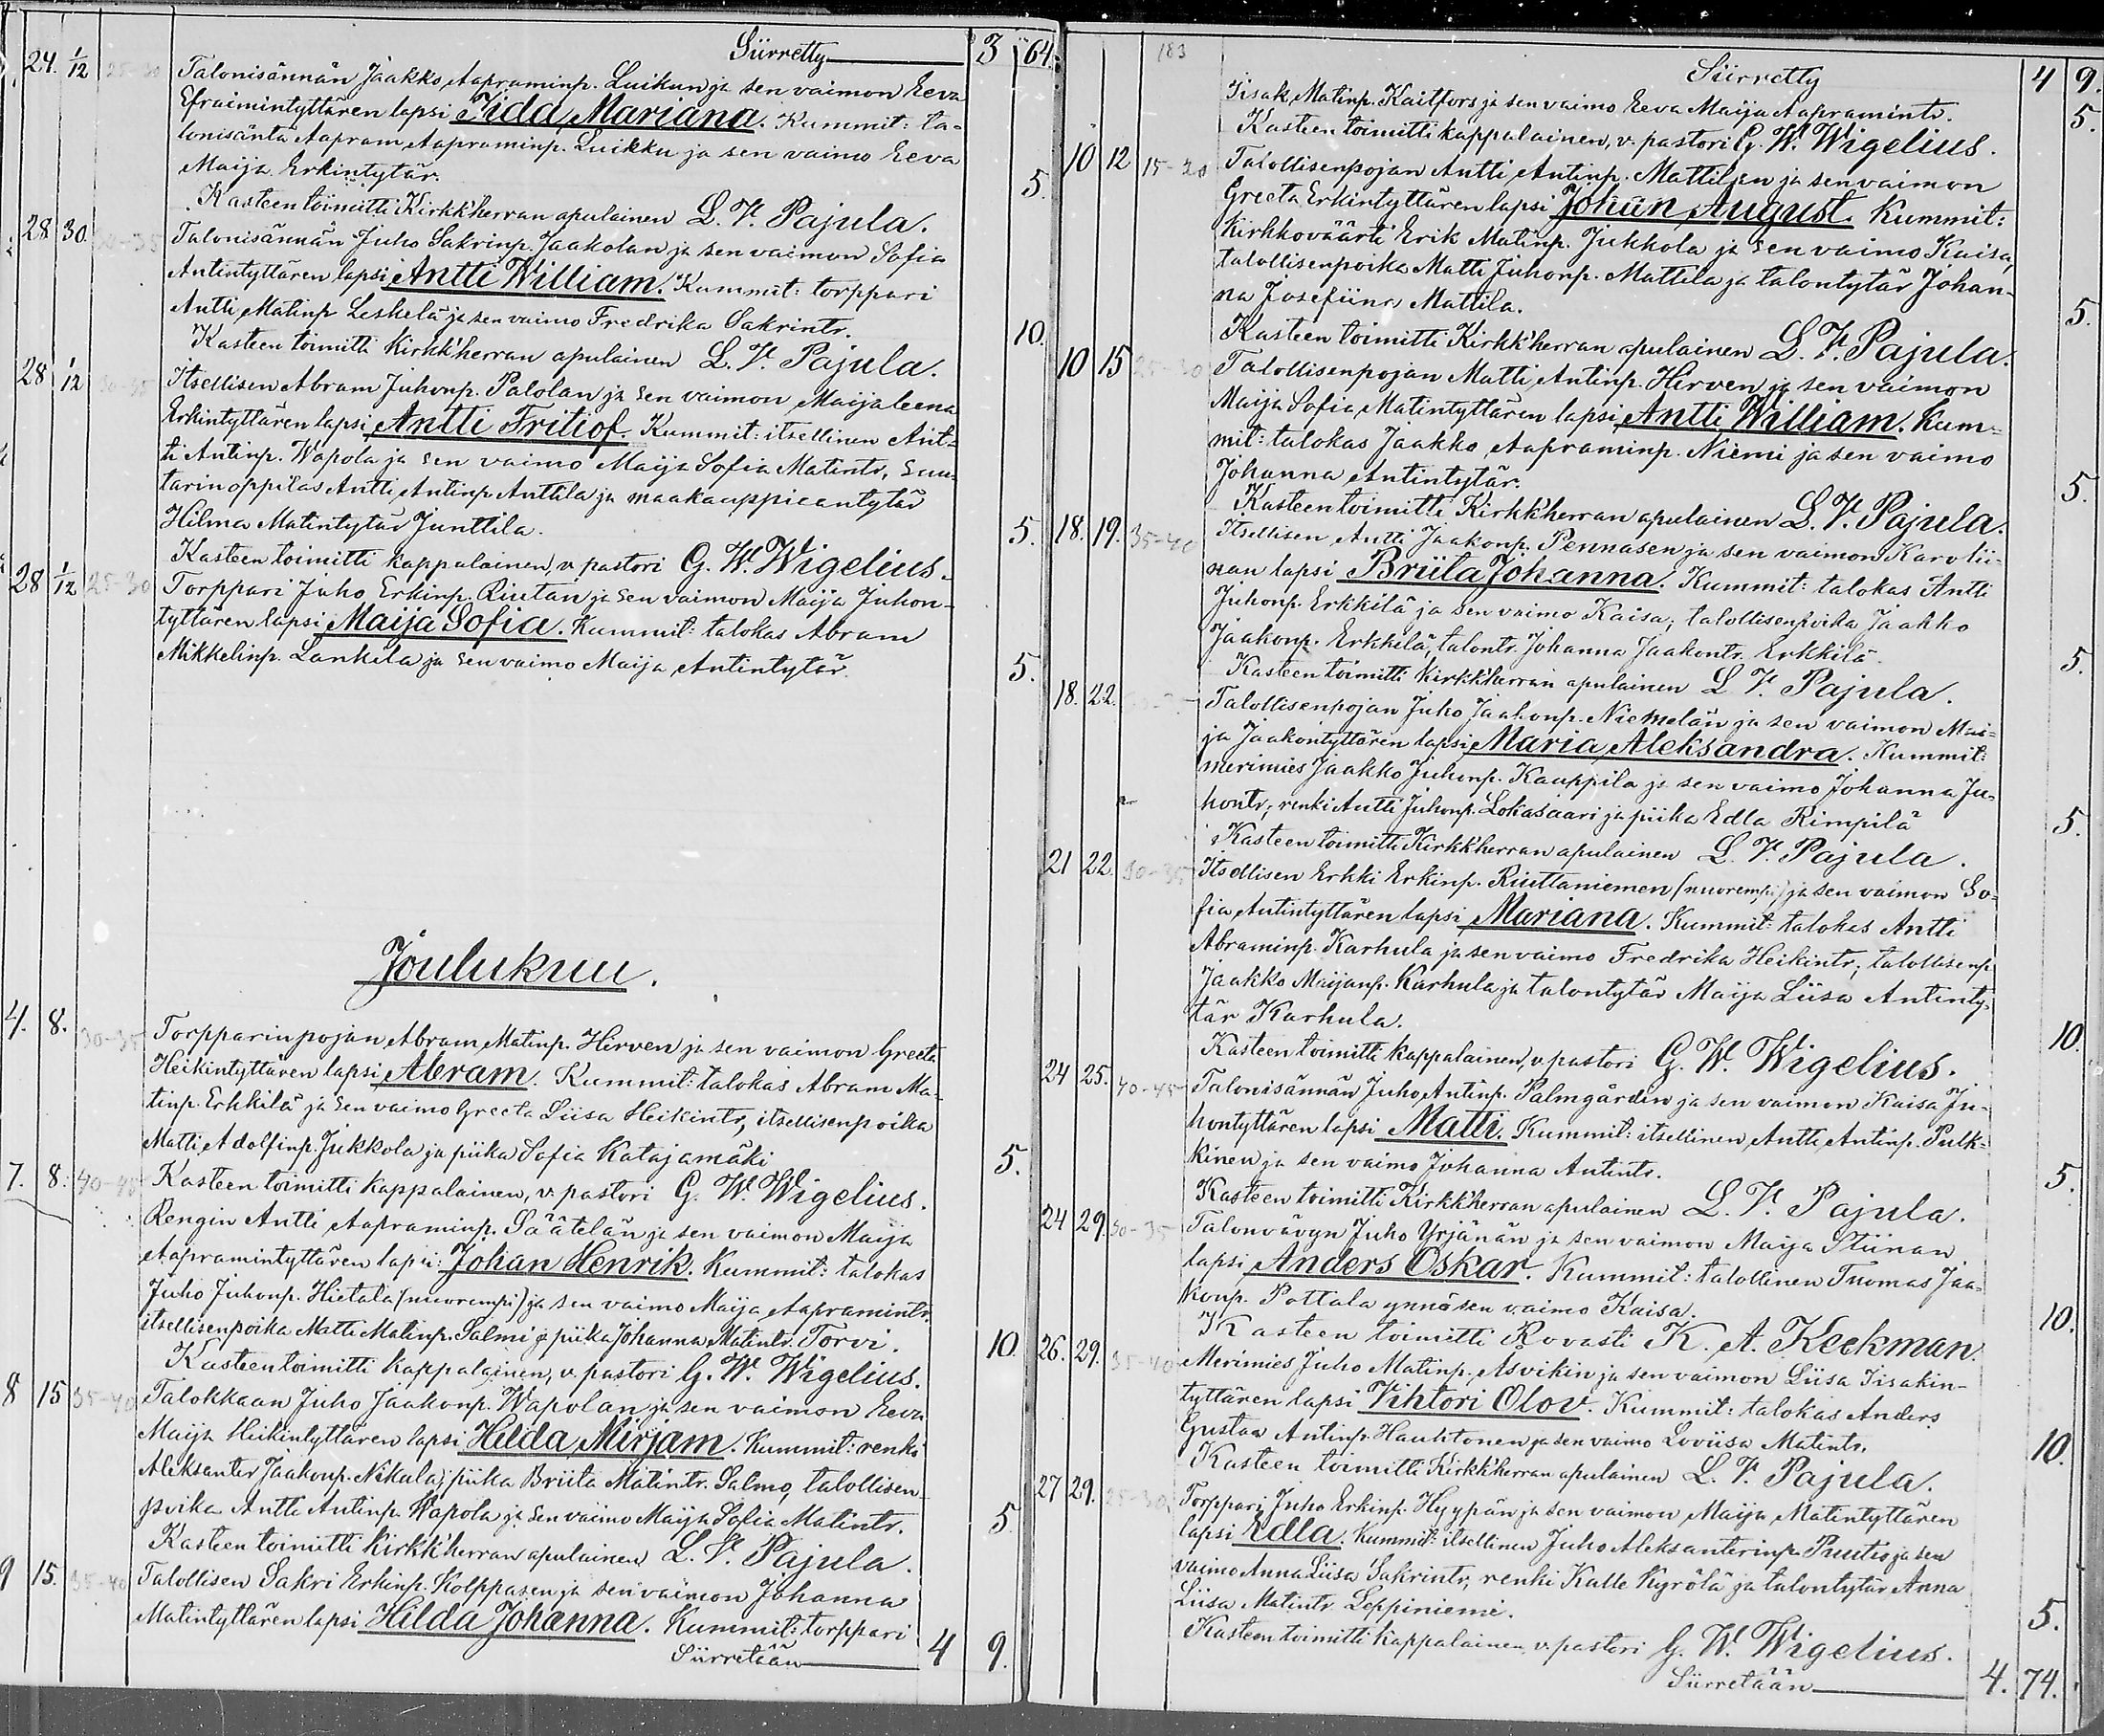 Siirretty 3 64.
24. 1/12 25-30 Talonisännän Jaakko Aapraminp. Luikun ja sen vaimon Eeva
Efraimintyttären lapsi Iida Mariana. Kummit: ta-
lonisäntä Aapram Aapraminp. Luikku ja sen vaimo Eeva
Maija Erkintytär. 5.
Kasteen toimitti Kirkk'herran apulainen L. V. Pajula.
28 30. 30-35 Talonisännän Juho Sakrinp. Jaakolan ja sen vaimon Sofia
Antintyttären lapsi Antti William. Kummit: torppari
Antti Matinp Leskelä ja sen vaimo Fredrika Sakrintr. 10.
Kasteen toimitti Kirkk'herran apulainen L. V. Pajula.
28 1/12 30-35 Itsellisen Abram Juhonp. Palolan ja sen vaimon Maijaleena
Erkintyttären lapsi Antti Fritiof. Kummit: itsellinen Ant-
ti Antinp. Wapola ja sen vaimo Maija Sofia Matintr, suu-
tarinoppilas Antti Antinp Anttila ja maakauppiaantytär
Hilma Matintytär Junttila. 5.
Kasteen toimitti kappalainen, v. pastori G. W. Wigelius.
28 1/12 25-30 Torppari Juho Erkinp. Riutan ja sen vaimon Maija Juhon-
tyttären lapsi Maija Sofia. Kummit: talokas Abram
Mikkelinp. Lankila ja sen vaimo Maija Antintytär. 5.
Joulukuu.
4. 8. 30-35 Torpparinpojan Abram Matinp. Hirven ja sen vaimon Greeta
Heikintyttären lapsi Abram. Kummit: talokas Abram Ma-
tinp. Erkkilä ja sen vaimo Greeta Liisa Heikintr, itsellisenpoika
Matti Adolfinp. Jukkola ja piika Sofia Katajamäki 5.
Kasteen toimitti kappalainen, v. pastori G. W. Wigelius.
7. 8. 40-45 Rengin Antti Aapraminp. Säätelän ja sen vaimon Maija
Aapramintyttären lapsi: Johan Henrik. Kummit: talokas
Juho Juhonp. Hietala (nuorempi) ja sen vaimo Maija Aapramintr.
itsellisenpoika Matti Matinp. Salmi ja piika Johanna Matintr. Torvi. 10.
Kasteen toimitti kappalainen, v. pastori G. W. Wigelius.
8 15 35-40 Talokkaan Juho Jaakonp. Wapolan ja sen vaimon Eeva
Maija Heikintyttären lapsi Hilda Mirjam. Kummit: renki
Aleksanter Jaakonp. Nikula; piika Briita Matintr. Salmo, talollisen-
poika Antti Antinp. Wapola ja sen vaimo Maija Sofia Matintr. 5
Kasteen toimitti Kirkk'herran apulainen L. V. Pajula.
9 15. 35-40 Talollisen Sakri Erkinp. Kolppasen ja sen vaimon Johanna
Matintyttären lapsi Hilda Johanna. Kummit: torppari
Siirretään 4 9.
183
Siirretty 4 9.
Iisak Matinp. Kaitfors ja sen vaimo Eeva Maija Aapramintr. 5.
Kasteen toimitti kappalainen, v. pastori G. W. Wigelius.
10 12 15-20 Talollisenpojan Antti Antinp. Mattilan ja sen vaimon
Greeta Erkintyttären lapsi Johan August. Kummit:
Kirkkoväärti Erik Matinp. Jukkola ja sen vaimo Kaisa,
talollisenpoika Matti Juhonp. Mattila ja talontytär Johan-
na Josefiina Mattila. 5.
Kasteen toimitti Kirkk'herran apulainen L. V. Pajula.
10 15 25-30 Talollisenpojan Matti Antinp. Hirven ja sen vaimon
Maija Sofia Matintyttären lapsi Antti William. Kum-
mit: talokas Jaakko Aapraminp. Niemi ja sen vaimo
Johanna Antintytär. 5.
Kasteen toimitti Kirkk'herran apulainen L. V. Pajula.
18. 19. 35-40 Itsellisen Antti Jaakonp. Pennasen ja sen vaimon Karolii-
nan lapsi Briita Johanna. Kummit: talokas Antti
Juhonp. Erkkilä ja sen vaimo Kaisa; talollisenpoika Jaakko
Jaakonp. Erkkilä, talontr. Johanna Jaakontr. Erkkilä. 5.
Kasteen toimitti Kirkk'herran apulainen L V. Pajula.
18. 22. Talollisenpojan Juho Jaakonp. Niemelän ja sen vaimon Mai-
ja Jaakontyttären lapsi Maria Aleksandra. Kummit:
merimies Jaakko Juhonp. Kauppila ja sen vaimo Johanna Ju-
hontr, renki Antti Juhonp. Lokasaari ja piika Edla Rimpilä 5.
Kasteen toimitti Kirkk'herran apulainen L. V. Pajula.
21 22. 30-35 Itsellisen Erkki Erkinp. Riuttaniemen (nuorempi) ja sen vaimon So-
fia Antintyttären lapsi Mariana. Kummit: talokas Antti
Abraminp. Karhula ja sen vaimo Fredrika Heikintr; talollisenp.
Jaakko Maijanp. Karhula ja talontytär Maija Liisa Antinty-
tär Karhula. 10.
Kasteen toimitti kappalainen, v. pastori G. W. Wigelius.
24 25. 40-45 Talonisännän Juho Antinp. Palmgårdin ja sen vaimon Kaisa Ju-
hontyttären lapsi Matti. Kummit: itsellinen Antti Antinp. Pulk-
kinen ja sen vaimo Johanna Antintr. 5.
Kasteen toimitti Kirkk'herran apulainen L. V. Pajula.
24 29. 30-35 Talonvävyn Juho Yrjänän ja sen vaimon Maija Stiinan
lapsi Anders Oskar. Kummit: talollinen Tuomas Jaa-
konp. Pottala ynnä sen vaimo Kaisa. 10.
Kasteen toimitti Rovasti K. A. Keckman.
26. 29. 35-40 Merimies Juho Matinp. Asvikin ja sen vaimon Liisa Iisakin-
tyttären lapsi Vihtori Olov. Kummit: talokas Anders
Gustaa Antinp. Hauhtonen ja sen vaimo Loviisa Matintr. 10.
Kasteen toimitti Kirkk'herran apulainen L. V. Pajula.
27 29. 25-30 Torppari Juho Erkinp. Hyypän ja sen vaimon Maija Matintyttären
lapsi Edla. Kummit: itsellinen Juho Aleksanterinp. Puutio ja sen
vaimo Anna Liisa Sakrintr, renki Kalle Kyrölä ja talontytär Anna
Liisa Matintr. Leppiniemi. 5.
Kasteen toimitti kappalainen v. pastori G. W. Wigelius.
Siirretään 4. 74.